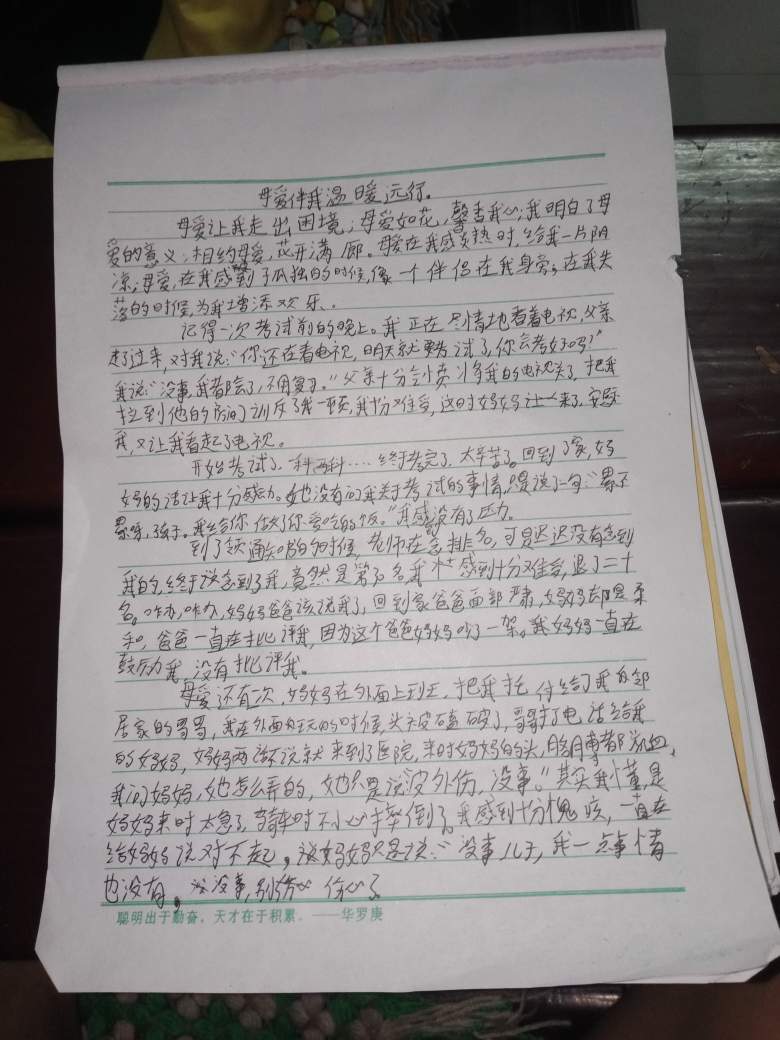 母爱伴我温暖远行。
母爱让我走出困境；母爱如花，馨香我心；我明白了母
爱的意义；相约母爱，花开满廊。母爱在我感炎热时，给我一片阴
凉；母爱，在我感到了孤独的时候，像一个伴侣在我身旁；在我失
落的时候，为我增添欢乐.
记得一次考试前的晚上。我正在尽情地看着电视，父亲
走过来，对我说：“你还在看电视，明天就要考试了，你会考好吗？”
我说：“没事，我都会了，不用复习。”父亲十分气愤，将我的电视关了，把我
拉到他的房间训斥了我一顿，我十分难受，这时妈妈让人来了，安慰
我，又让我看起了电视。
开始考试了，一科两科……终于考完了，太辛苦了。回到了家，妈
妈的话让我十分感动。她也没有问我关于考试的事情，只是说了一句：“累不
累呀，孩子。我给你做了你爱吃的饭。”我感没有了压力.
到了领通知的时候，老师在念排名，可是迟迟没有念到
我的，终于该念到了我，竟然是第30名，我感到十分难受，退了二十
名。咋办，咋办，妈妈爸爸该说我了，回到家爸爸面部严肃，妈妈却是柔
和，爸爸一直在批评我，因为这个爸爸妈妈吵了一架。我妈妈一直在
鼓励我，没有批评我。
母爱还有次，妈妈在外面上班，把我托付给了我的邻
居家的哥哥，我在外面玩的时候，头被磕破了，哥哥打了电话给我
的妈妈，妈妈两话不说就来到了医院，来时妈妈的头，胳膊都流血，
我问妈妈，她怎么弄的，她只是说没外伤，没事。”其实我懂，是
妈妈来时太急了，骑车时不小心摔倒了。我感到十分愧疚，一直在
给妈妈说对不起，该妈妈只是说：“没事儿子，我一点事情
也没有。没事，别伤心了
聪明出于勤奋，天才在于积累。——华罗庚